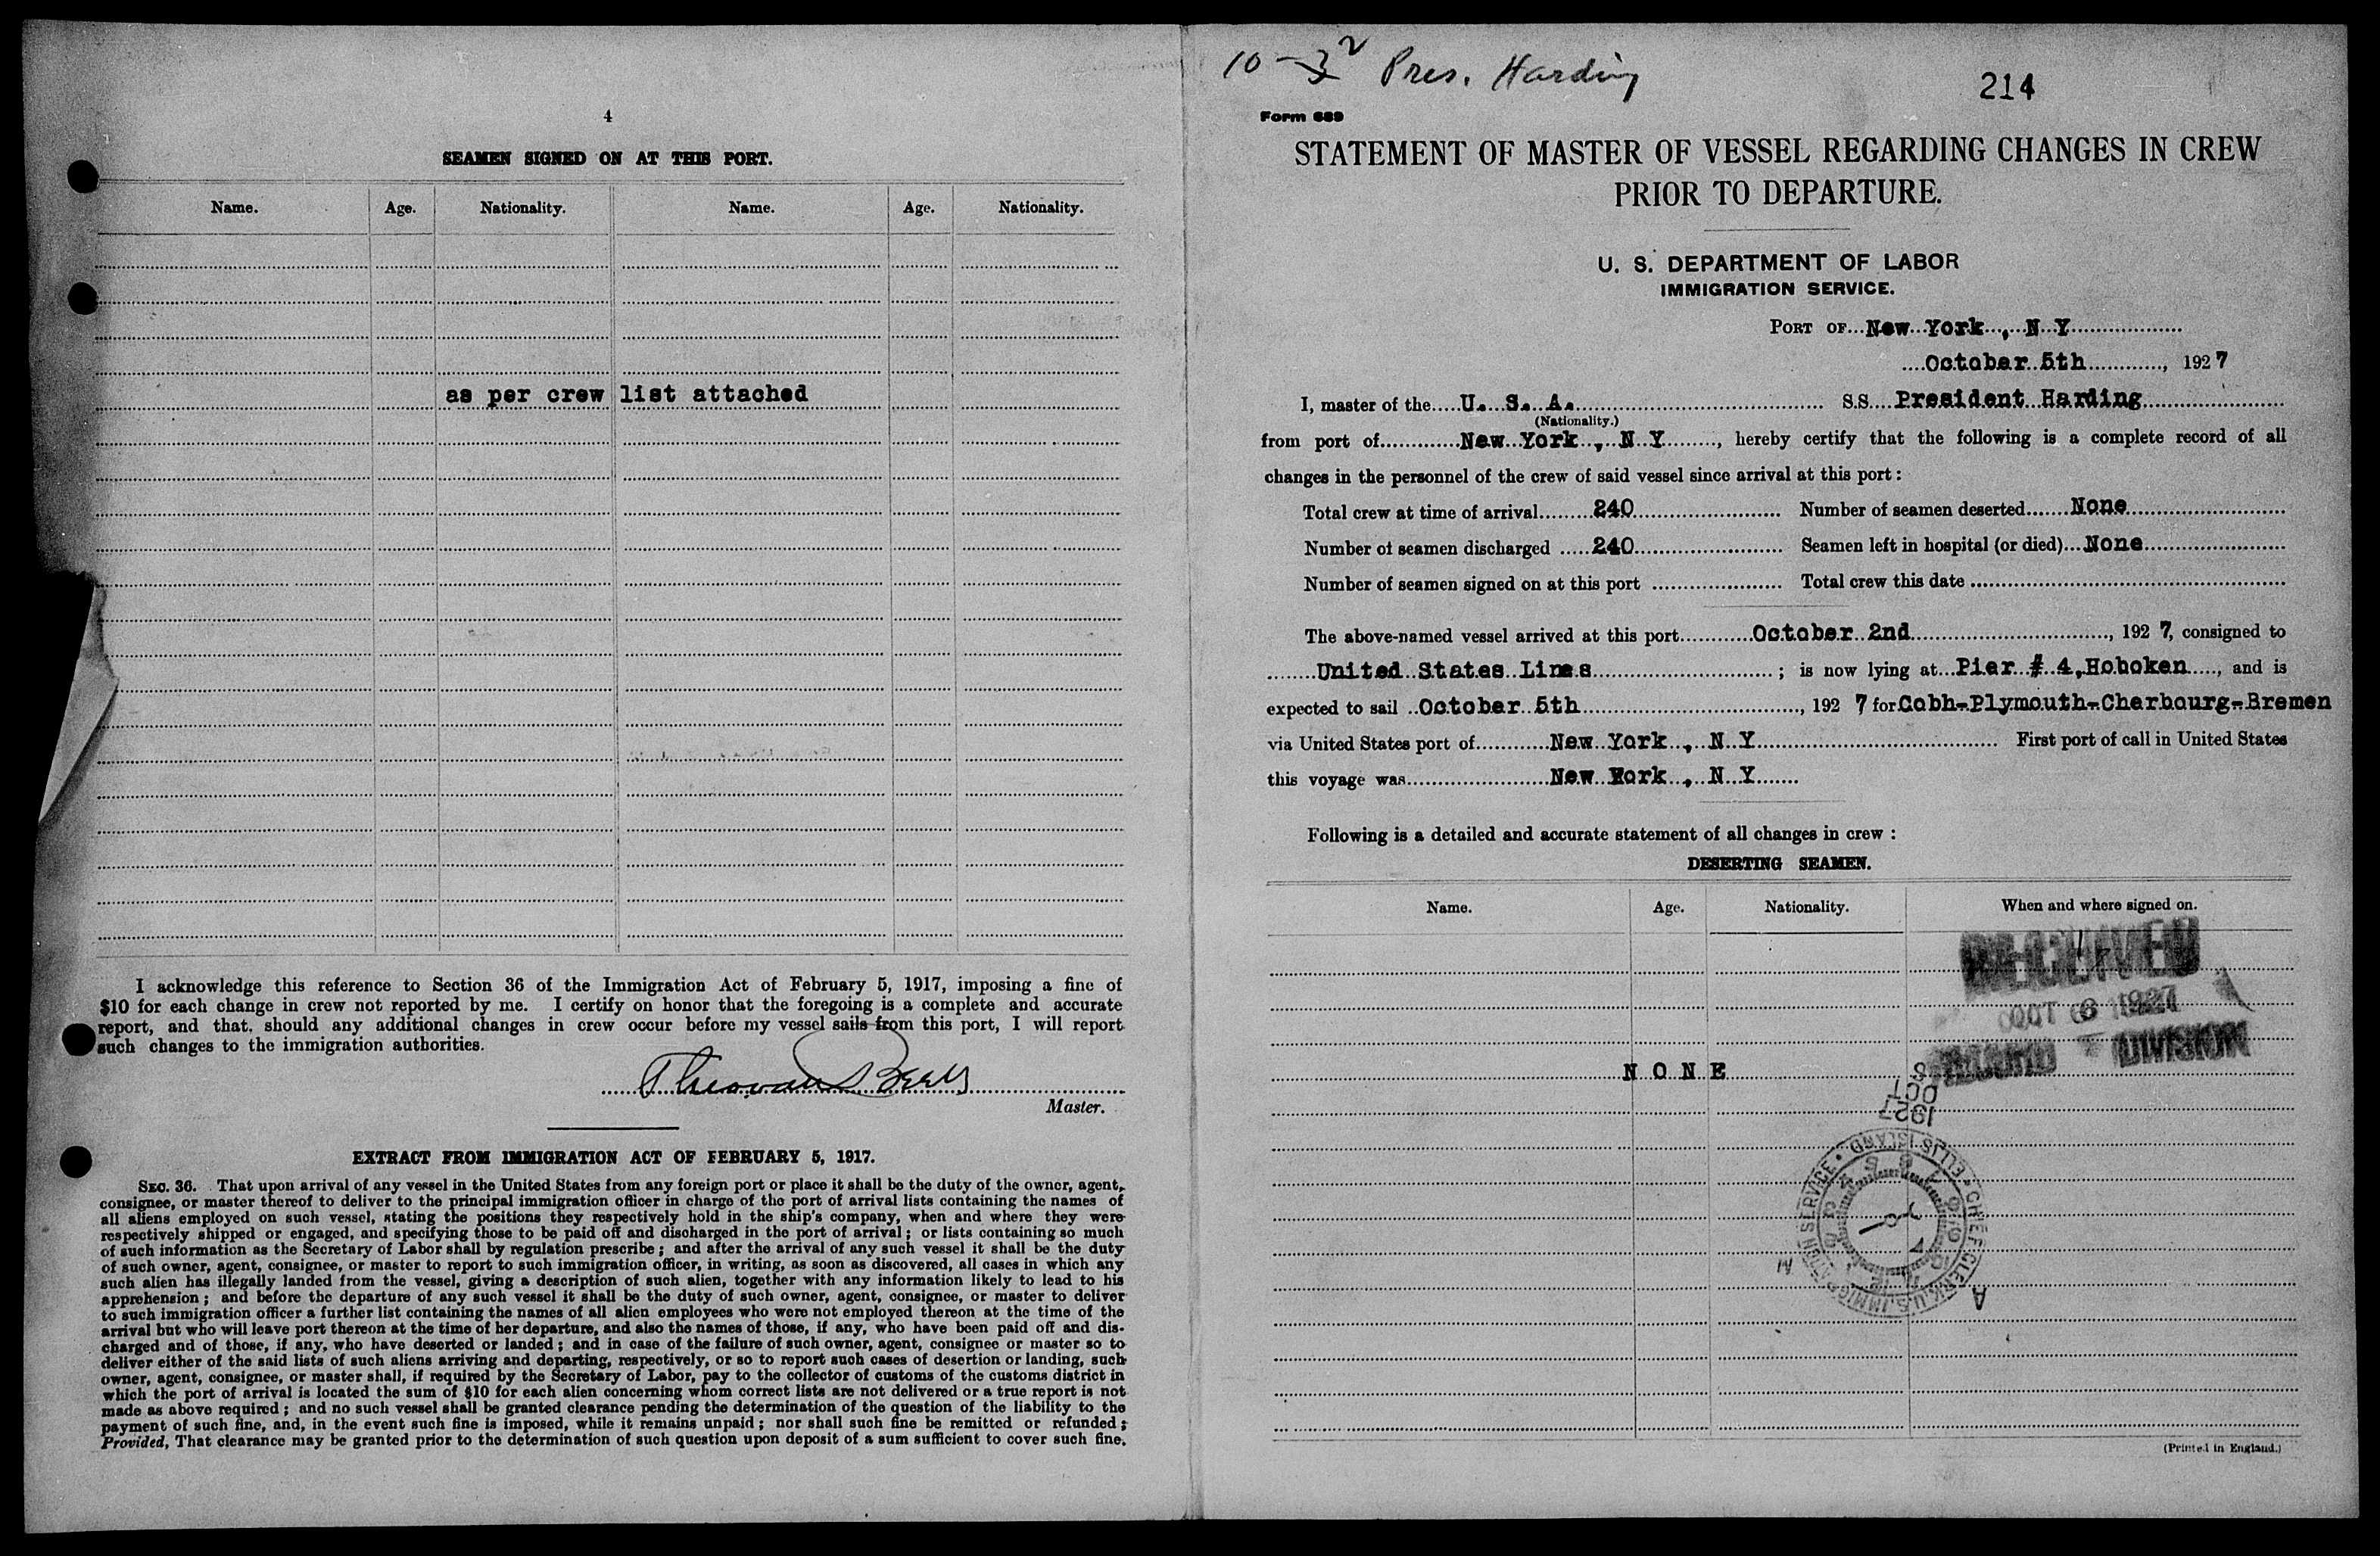 4
SEAMEN SIGNED ON AT THIS PORT.
Name. Age. Nationality. Name. Age. Nationality.
as per crew list attached
I acknowledge this reference to Section 36 of the Immigration Act of February 5, 1917, imposing a fine of
$10 for each change in crew not reported by me. I certify on honor that the foregoing is a complete and accurate
report, and that, should any additional changes in crew occur before my vessel sails from this port, I will report
such changes to the immigration authorities.
Master.
EXTRACT FROM IMMIGRATION ACT OF FEBRUARY 5, 1917.
SEC. 36. That upon arrival of any vessel in the United States from any foreign port or place it shall be the duty of the owner, agent,
consignee, or master thereof to deliver to the principal immigration officer in charge of the port of arrival lists containing the names of
all aliens employed on such vessel, stating the positions they respectively hold in the ship's company, when and where they were
respectively shipped or engaged, and specifying those to be paid off and discharged in the port of arrival; or lists containing so much
of such information as the Secretary of Labor shall by regulation prescribe; and after the arrival of any such vessel it shall be the duty
of such owner, agent, consignee, or master to report to such immigration officer, in writing, as soon as discovered, all cases in which any
such alien has illegally landed from the vessel, giving a description of such alien, together with any information likely to lead to his
apprehension; and before the departure of any such vessel it shall be the duty of such owner, agent, consignee, or master to deliver
to such immigration officer a further list containing the names of all alien employees who were not employed thereon at the time of the
arrival but who will leave port thereon at the time of her departure, and also the names of those, if any, who have been paid off and dis-
charged and of those, if any, who have deserted or landed; and in case of the failure of such owner, agent, consignee or master so to
deliver either of the said lists of such aliens arriving and departing, respectively, or so to report such cases of desertion or landing, such
owner, agent, consignee, or master shall, if required by the Secretary of Labor, pay to the collector of customs of the customs district in
which the port of arrival is located the sum of $10 for each alien concerning whom correct lists are not delivered or a true report is not
made as above required; and no such vessel shall be granted clearance pending the determination of the question of the liability to the
payment of such fine, and, in the event such fine is imposed, while it remains unpaid; nor shall such fine be remitted or refunded;
Provided, That clearance may be granted prior to the determination of such question upon deposit of a sum sufficient to cover such fine.
10-3 2 Pres. Harding
214
Form 689
STATEMENT OF MASTER OF VESSEL REGARDING CHANGES IN CREW
PRIOR TO DEPARTURE.
U. S. DEPARTMENT OF LABOR
IMMIGRATION SERVICE.
PORT OF New York, N Y
October 5th, 1927
I, master of the U. S. A. S.S. President Harding
(Nationality.)
from port of New York, N Y, hereby certify that the following is a complete record of all
changes in the personnel of the crew of said vessel since arrival at this port:
Total crew at time of arrival 240 Number of seamen deserted None
Number of seamen discharged 240 Seamen left in hospital (or died) None
Number of seamen signed on at this port Total crew this date
The above-named vessel arrived at this port October 2nd, 1927, consigned to
United States Lines; is now lying at Pier # 4, Hoboken, and is
expected to sail October 5th, 1927 for Cobh-Plymouth-Cherbourg-Bremen
via United States port of New York, N Y First port of call in United States
this voyage was New York, N Y
Following is a detailed and accurate statement of all changes in crew:
DESERTING SEAMEN.
Name. Age. Nationality. When and where signed on.
RECEIVED
OCT 6 1927
RECORD DIVISION
NONE
OCT
1927
CHIEF CLERK, U.S. IMMIGRATION SERVICE • ELLIS ISLAND
A M
(Printed in England.)